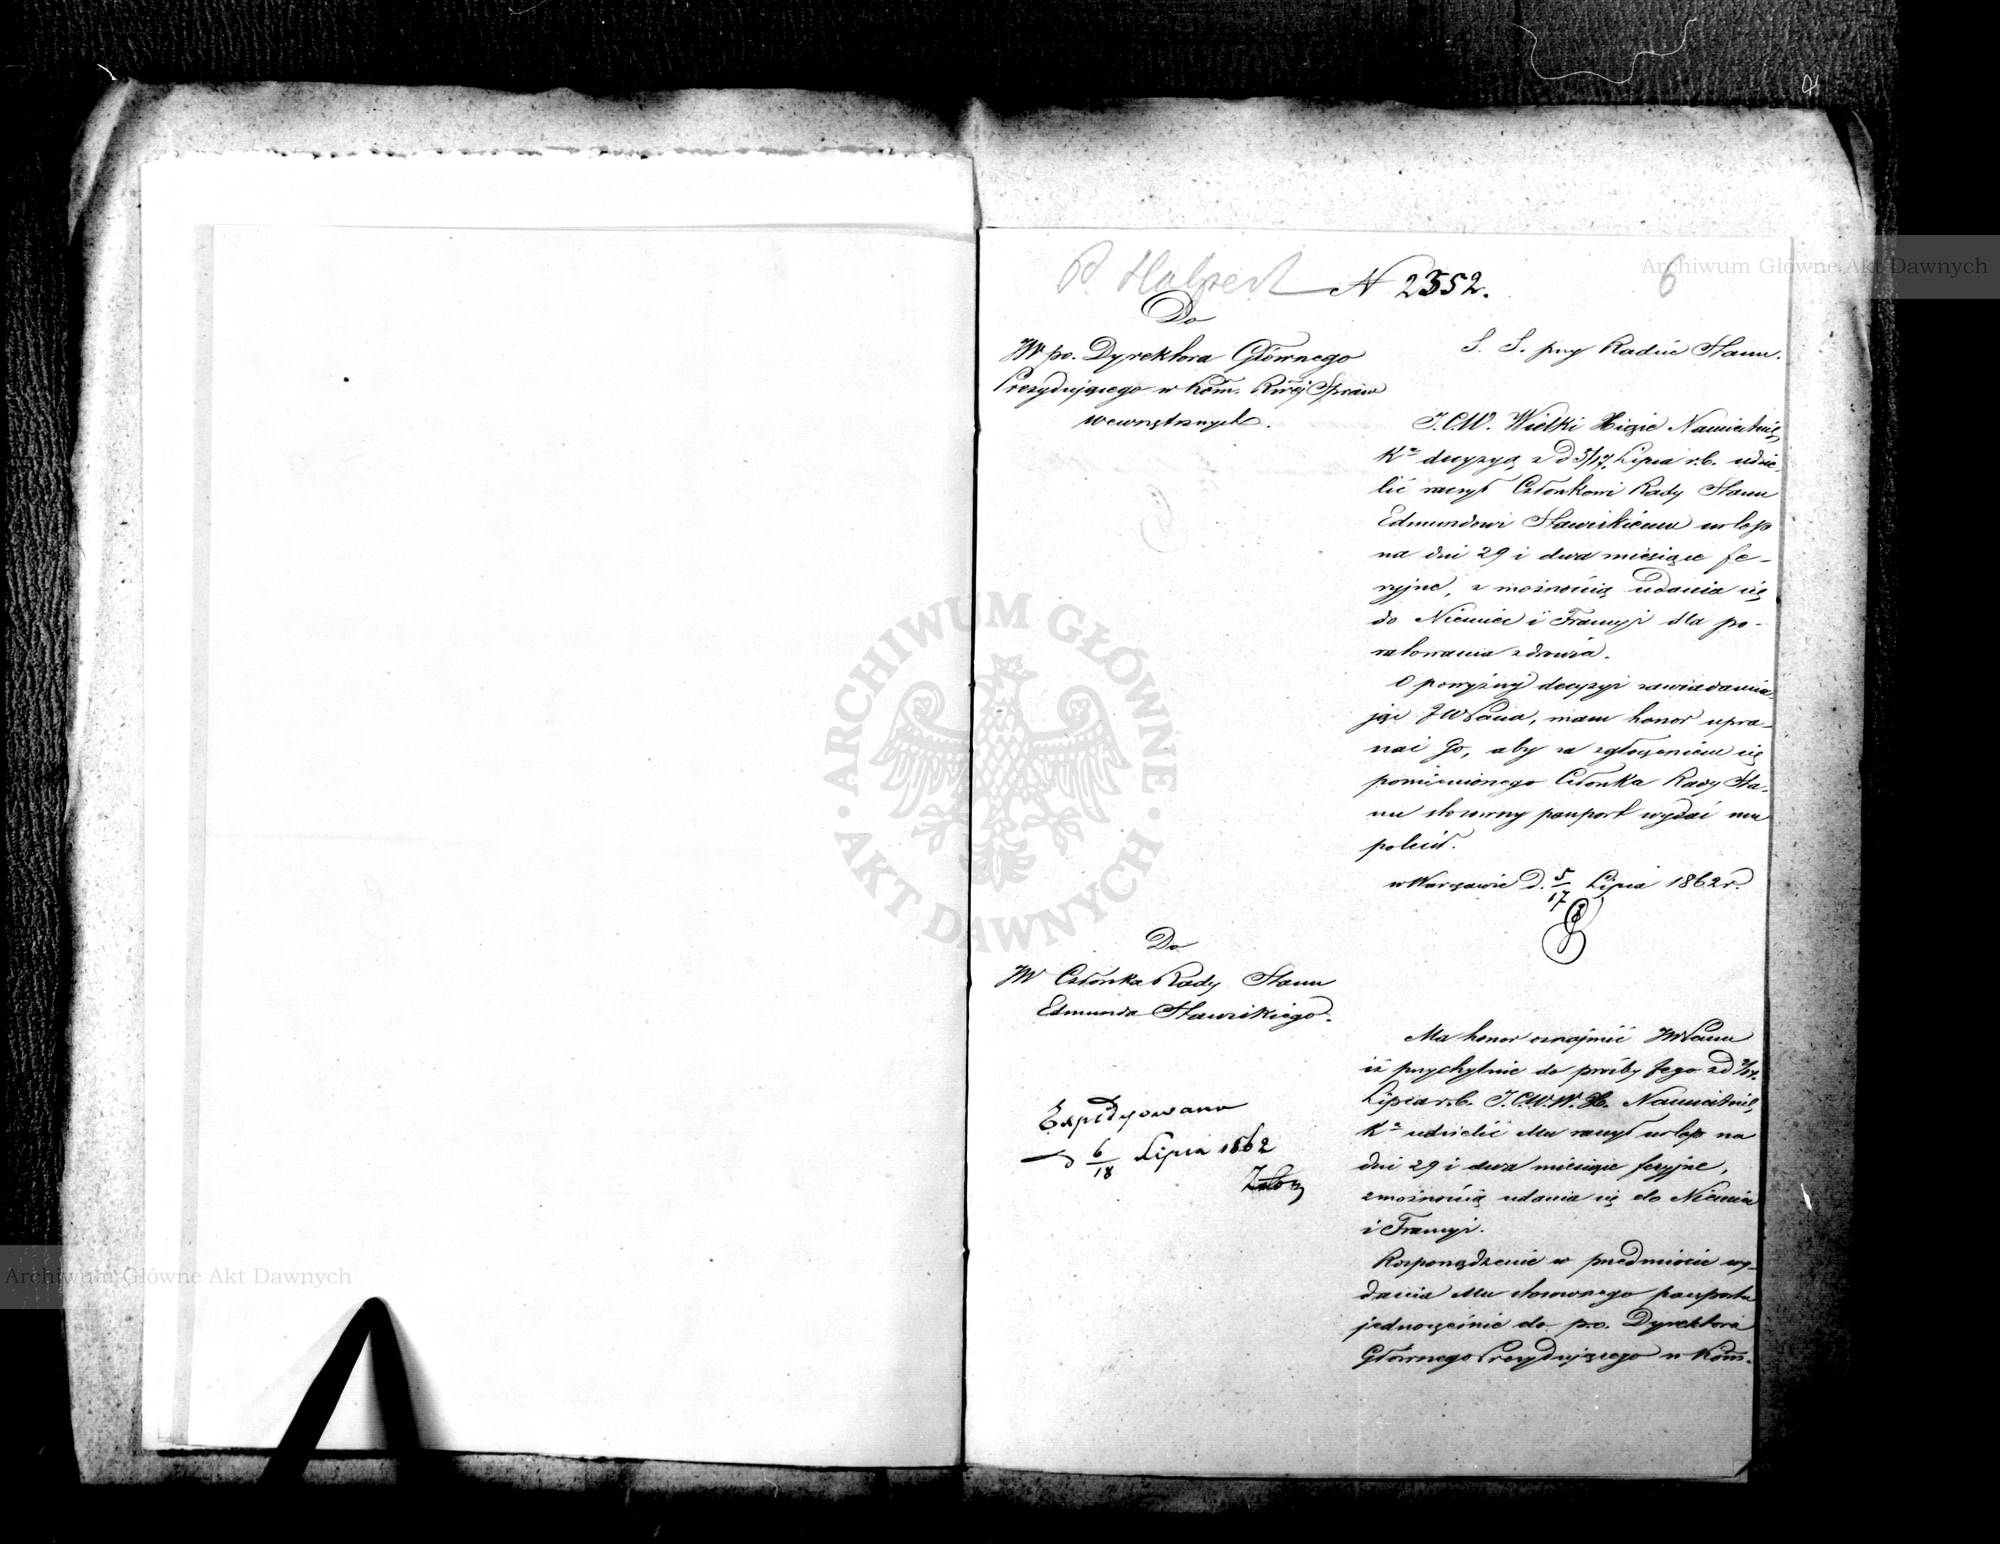 P. Halpert N 2352.
6
Do
JW po. Dyrektora Głównego
Prezydującego w Kom. Rząd. Spraw
wewnętrznych.
S. S. przy Radzie Stanu.
J.C.W. Wielki Xiąże Namiestnik
K. decyzyą z d 5/17. Lipca r.b. udzie-
lić raczył Członkowi Rady Stanu
Edmundowi Stawiskiemu urlop
na dni 29 i dwa miesiące fe-
ryjne, z możnością udania się
do Niemiec i Francyi dla po-
ratowania zdrowia.
O powyższej decyzyi zawiadamia-
jąc JWPana, mam honor upra-
szać Go, aby za zgłoszeniem się
pomienionego Członka Rady Sta-
nu stosowny paszport wydać mu
polecił.
w Warszawie d. 5/17 Lipca 1862 r.
Do
JW Członka Rady Stanu
Edmunda Stawiskiego.
Expedyowano
d 6/18 Lipca 1862
Ma honor oznajmić JWPanu
iż przychylnie do prośby Jego z d
Lipca r.b. J.C.W.W.X. Namiestnik
K. udzielić Mu raczył urlop na
dni 29 i dwa miesiące feryjne,
z możnością udania się do Niemiec
i Francyi.
Rozporządzenie w przedmiocie wy-
dania Mu stosownego paszportu
jednocześnie do p.o. Dyrektora
Głównego Prezydującego w Kom.
ARCHIWUM GŁÓWNE AKT DAWNYCH
Archiwum Główne Akt Dawnych
Archiwum Główne Akt Dawnych